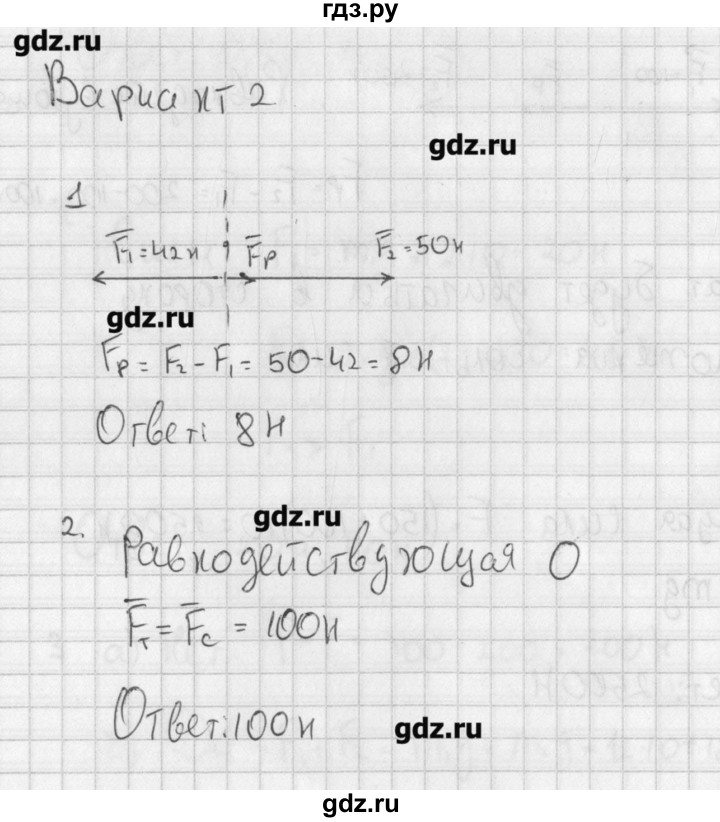 гдз.ру
gdz.ru
Вариант 2
gdz.ru
1
F̅₁=42н F̅р F̅₂=50н
gdz.ru
F̅р = F₂ - F₁ = 50-42 = 8Н
Ответ: 8Н
gdz.ru
2. Равнодействующая 0
F̅т = F̅с = 100Н
Ответ: 100Н
gdz.ru
gdz.ru